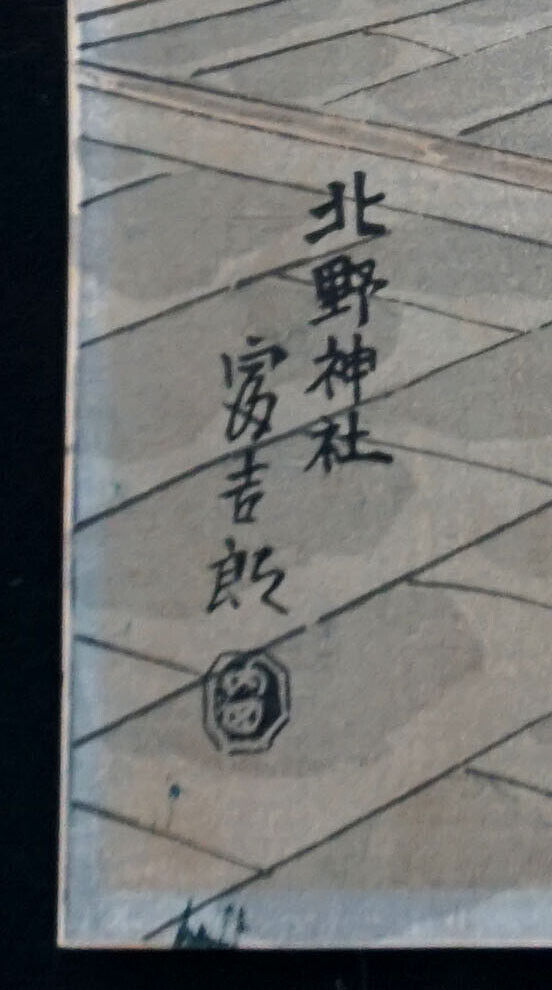 北野神社
富吉郎